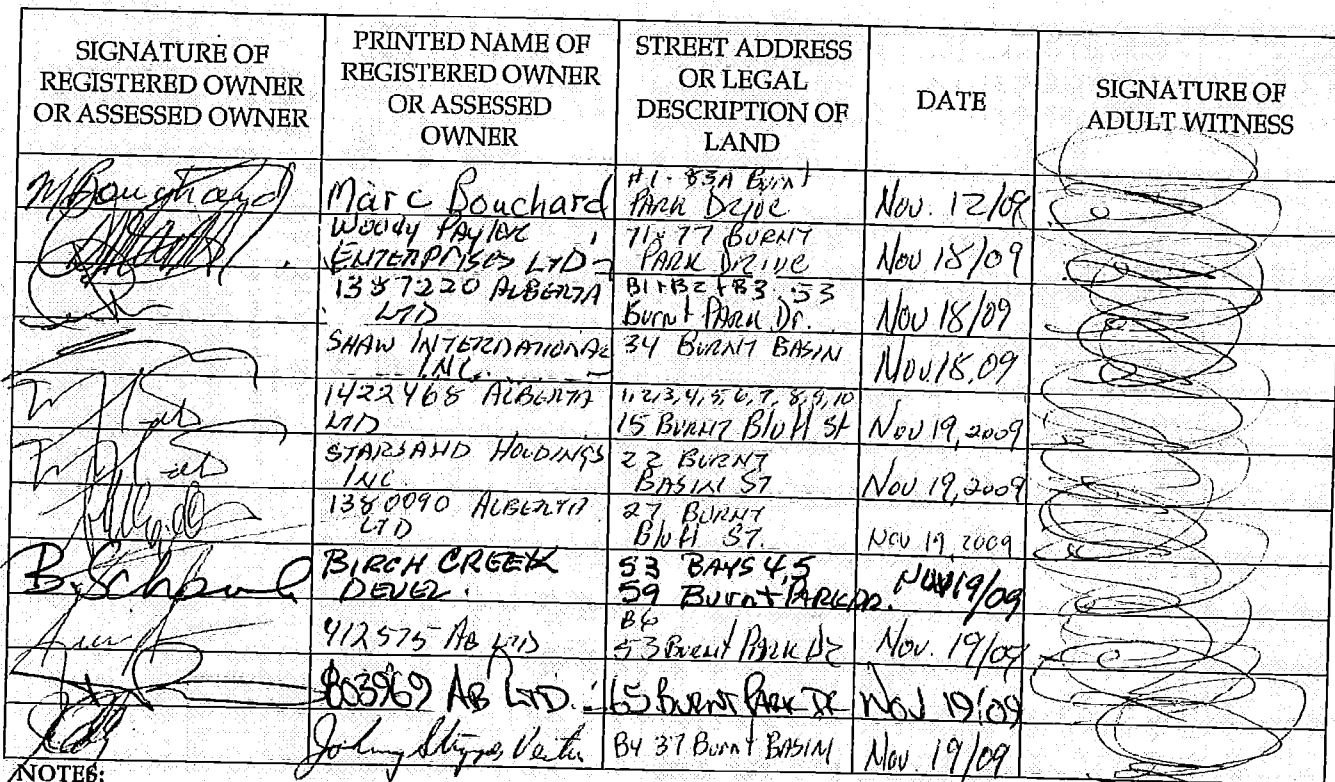 SIGNATURE OF
REGISTERED OWNER
OR ASSESSED OWNER
PRINTED NAME OF
REGISTERED OWNER
OR ASSESSED
OWNER
STREET ADDRESS
OR LEGAL
DESCRIPTION OF
LAND
DATE
SIGNATURE OF
ADULT WITNESS
M Bouchard
Marc Bouchard
#1-83A Burnt
PARK DRIVE
Nov. 12/09
WOODY PAYLOR
ENTERPRISES LTD
71 & 77 BURNT
PARK DRIVE
Nov 18/09
1387220 ALBERTA
LTD
B1+B2+B3 53
Burnt PARK Dr.
Nov 18/09
SHAW INTERNATIONAL
INC.
34 BURNT BASIN
Nov 18, 09
1422468 ALBERTA
LTD
1,2,3,4,5,6,7,8,9,10
15 BURNT Bluff St
Nov 19, 2009
STARSAND HOLDINGS
INC.
22 BURNT
BASIN ST
Nov 19, 2009
1380090 ALBERTA
LTD
27 BURNT
Bluff ST.
Nov 19, 2009
B. Schpaul
BIRCH CREEK
DEVEL.
53 BAYS 4,5
59 Burnt PARK DR.
Nov 19/09
412575 AB LTD
B6
53 Burnt PARK Dr
Nov. 19/09
803969 AB LTD.
65 BURNT PARK DR
Nov 19/09
Johnny
B4 37 Burnt BASIN
Nov. 19/09
NOTES: